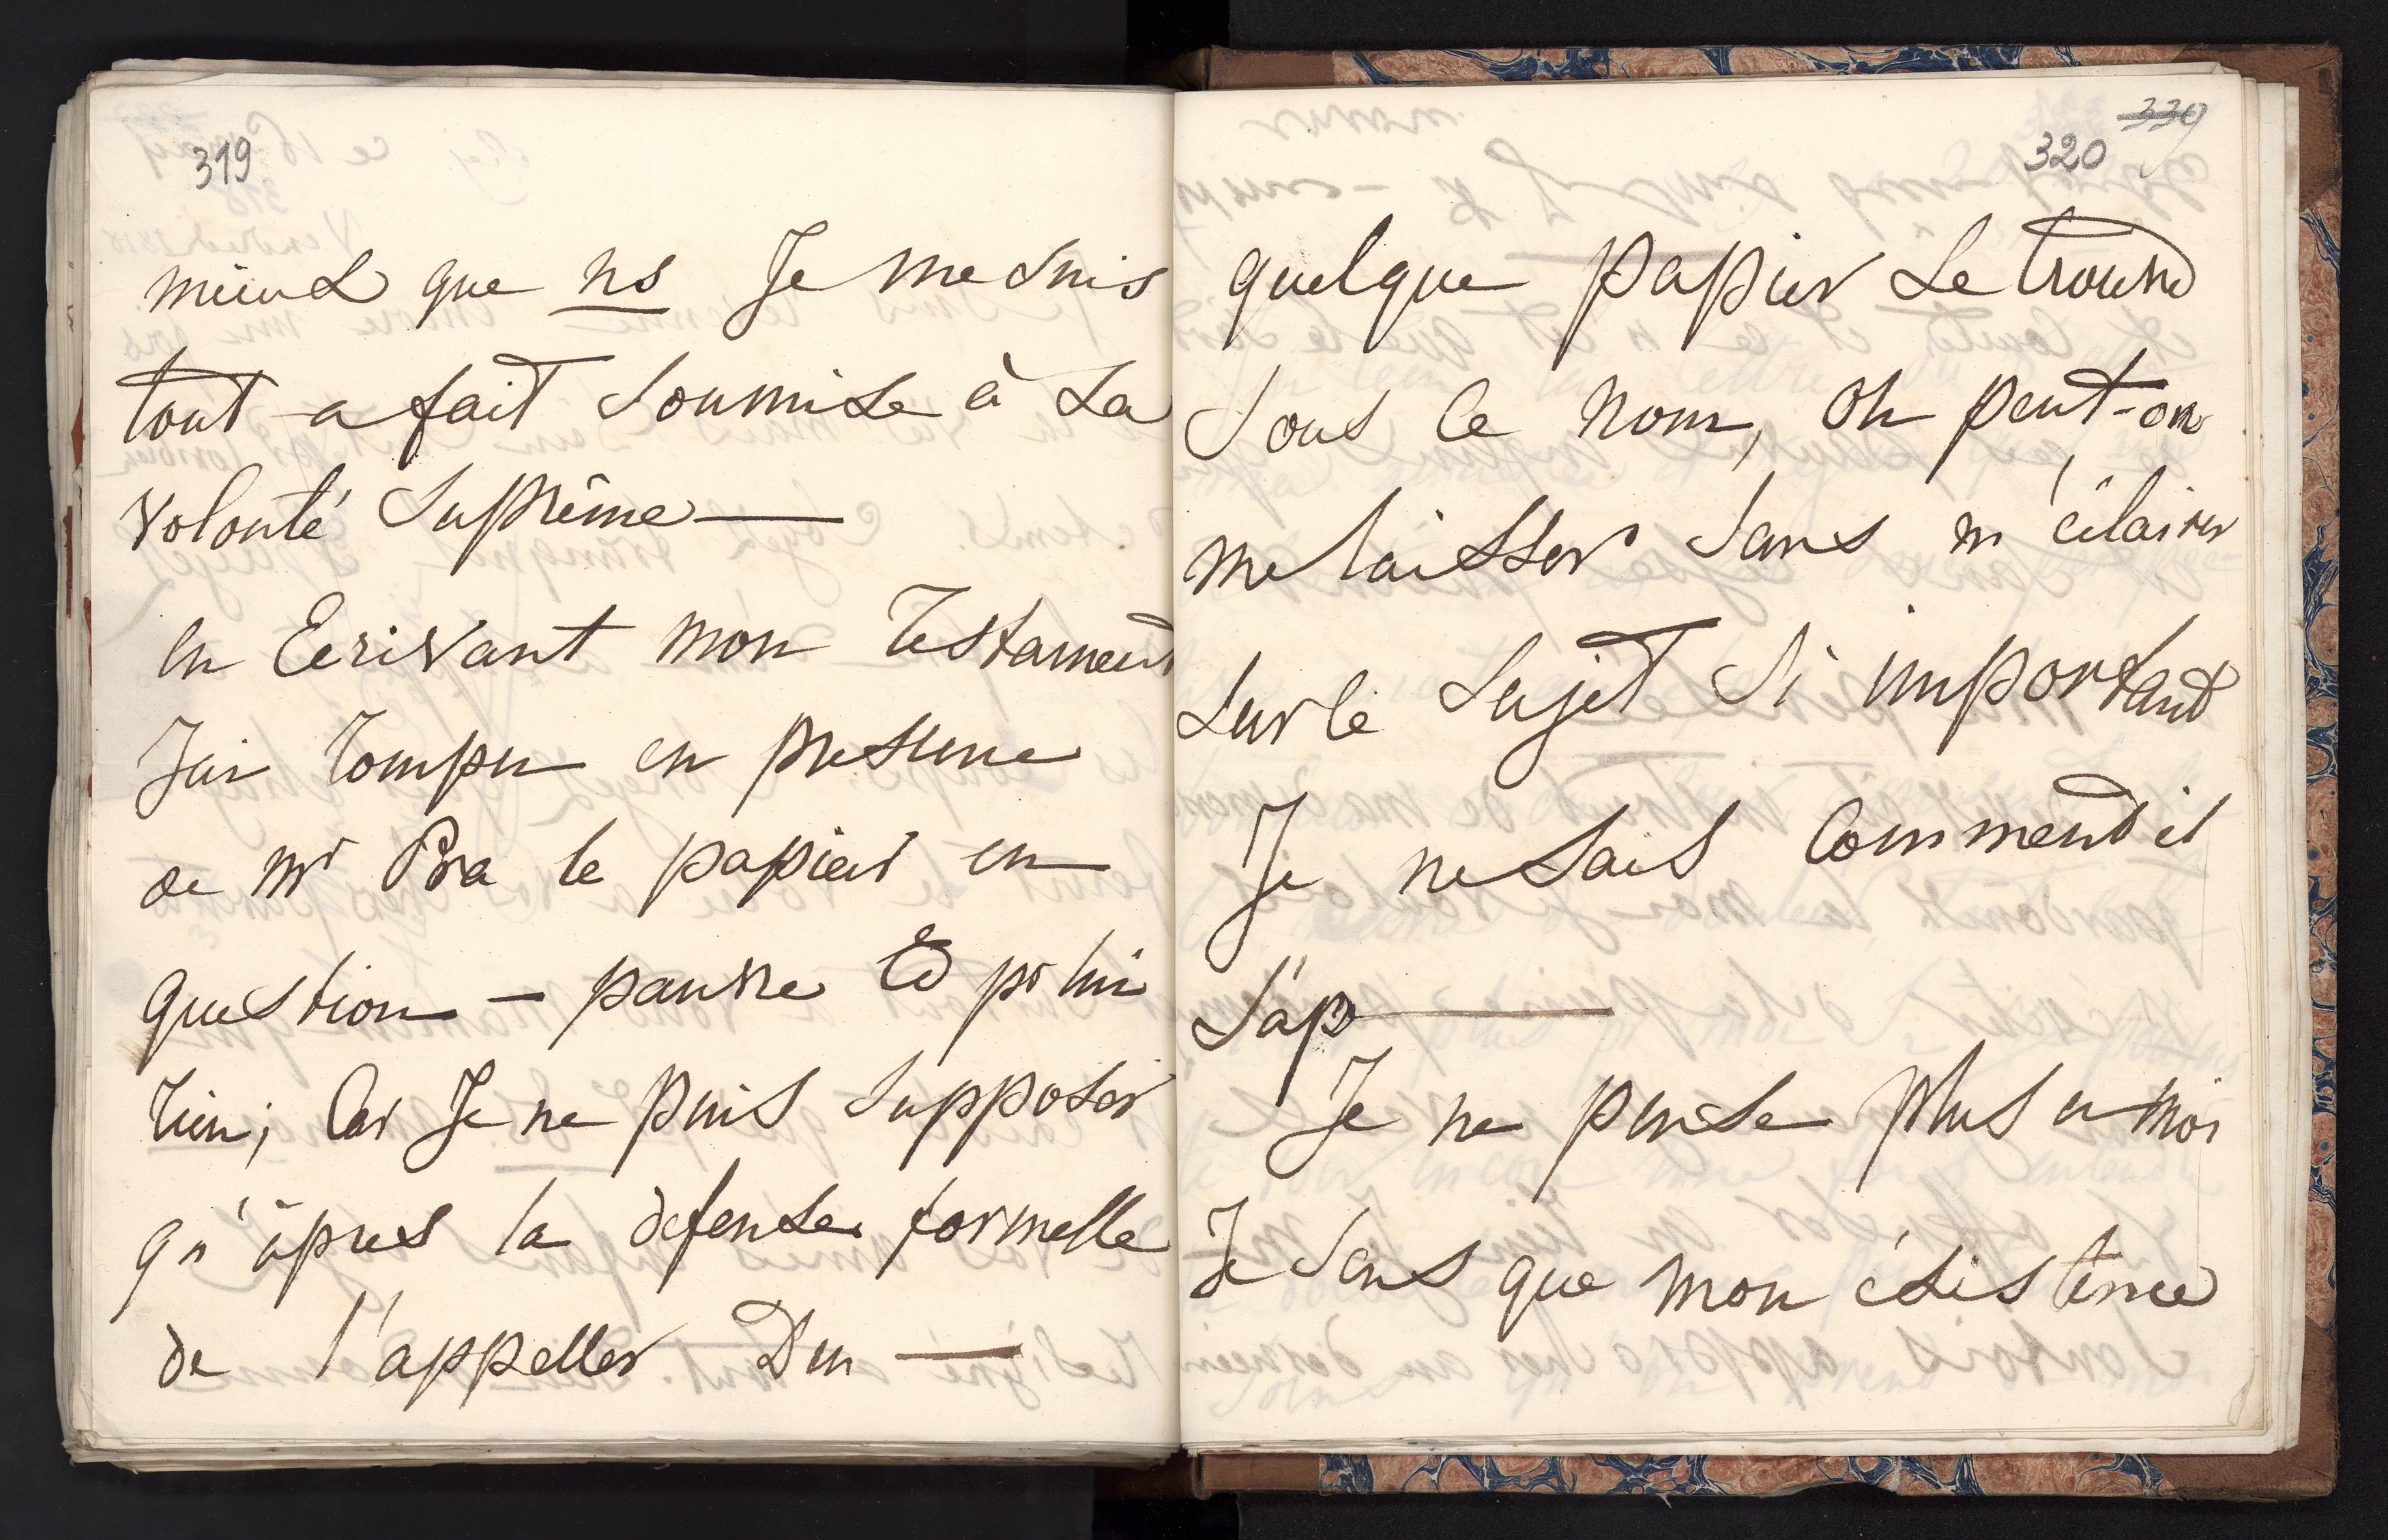 319
mieux que ns Je me suis
tout a fait soumise à sa
volonté suprême —
en Ecrivant mon Testament
J'ai rompu en presence
de Mr Bra le papier en
question — pauvre Ed pr lui
rien; Car Je ne puis supposer
qu'àpres la defense formelle
de l'appeller Du —
339
320
quelque papier se trouve
sous ce nom, Oh peut-on
me laisser sans m'éclairer
sur le sujet si important
Je ne sais Comment il
s'ap—
Je ne pense plus a moi
Je sens que mon éxistence